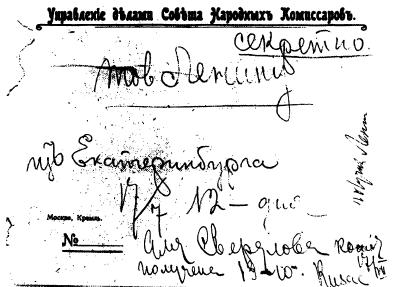 Управленіе дѣлами Совѣта Народныхъ Комиссаровъ.
секретно.
тов Ленину
изъ Екатеринбурга
17/7 12 - дня
Москва, Кремль.
№
для Свердлова копия
получена 13-10